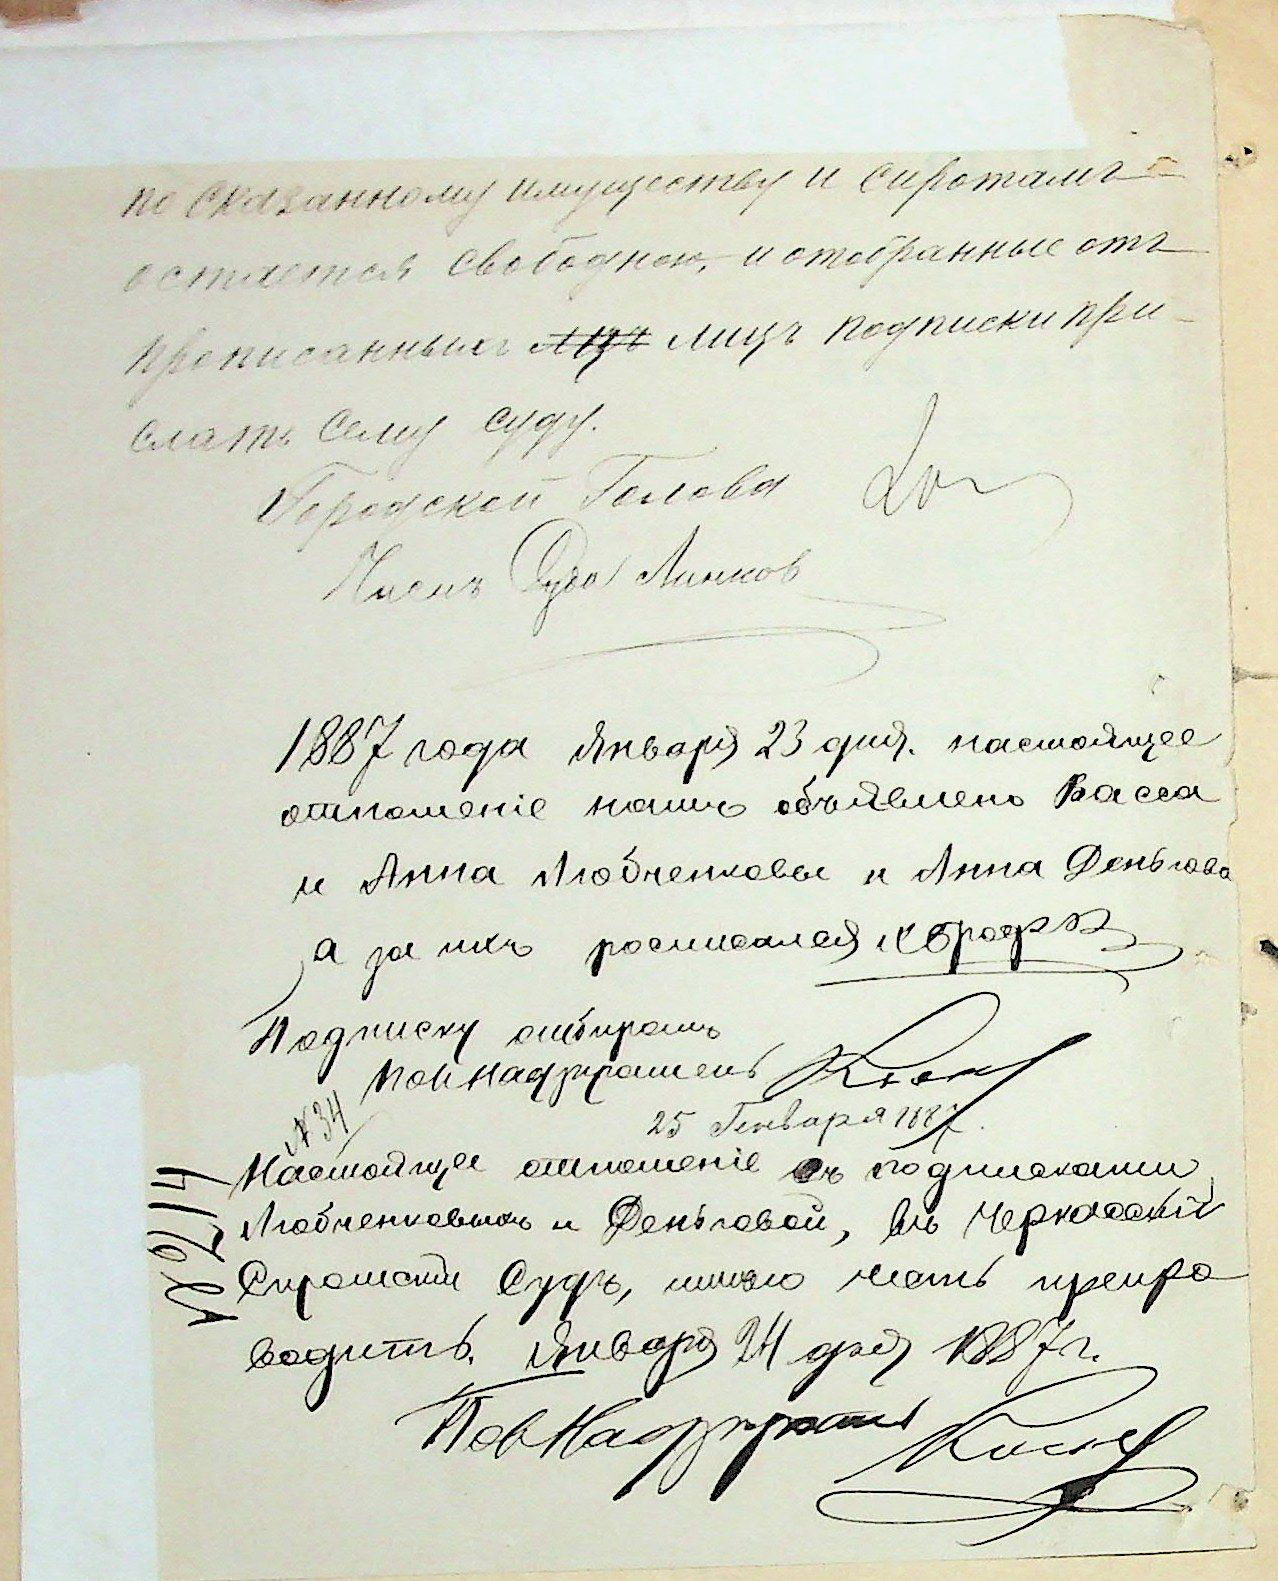 по сказанному имуществу и сиротамъ
остается свободною, и отобранные отъ
прописанныхъ лицъ лицъ подписки при-
слать сему суду.
Городской Голова
Писецъ Линков
1887 года января 23 дня. настоящее
отношеніе намъ объявлено Васса
и Анна Любченковы и Анна Деньгова
а за ихъ росписался
Подписку отбиралъ
Пол Надзиратель
25 Генваря 1887.
N 34
Настоящее отношеніе съ подписками
Любченковыхъ и Деньговой, въ Черкасскій
Сиротскій Судъ, имѣю честь препро
водить. Января 24 дня 1887 г.
Пол Надзиратель
№ 214